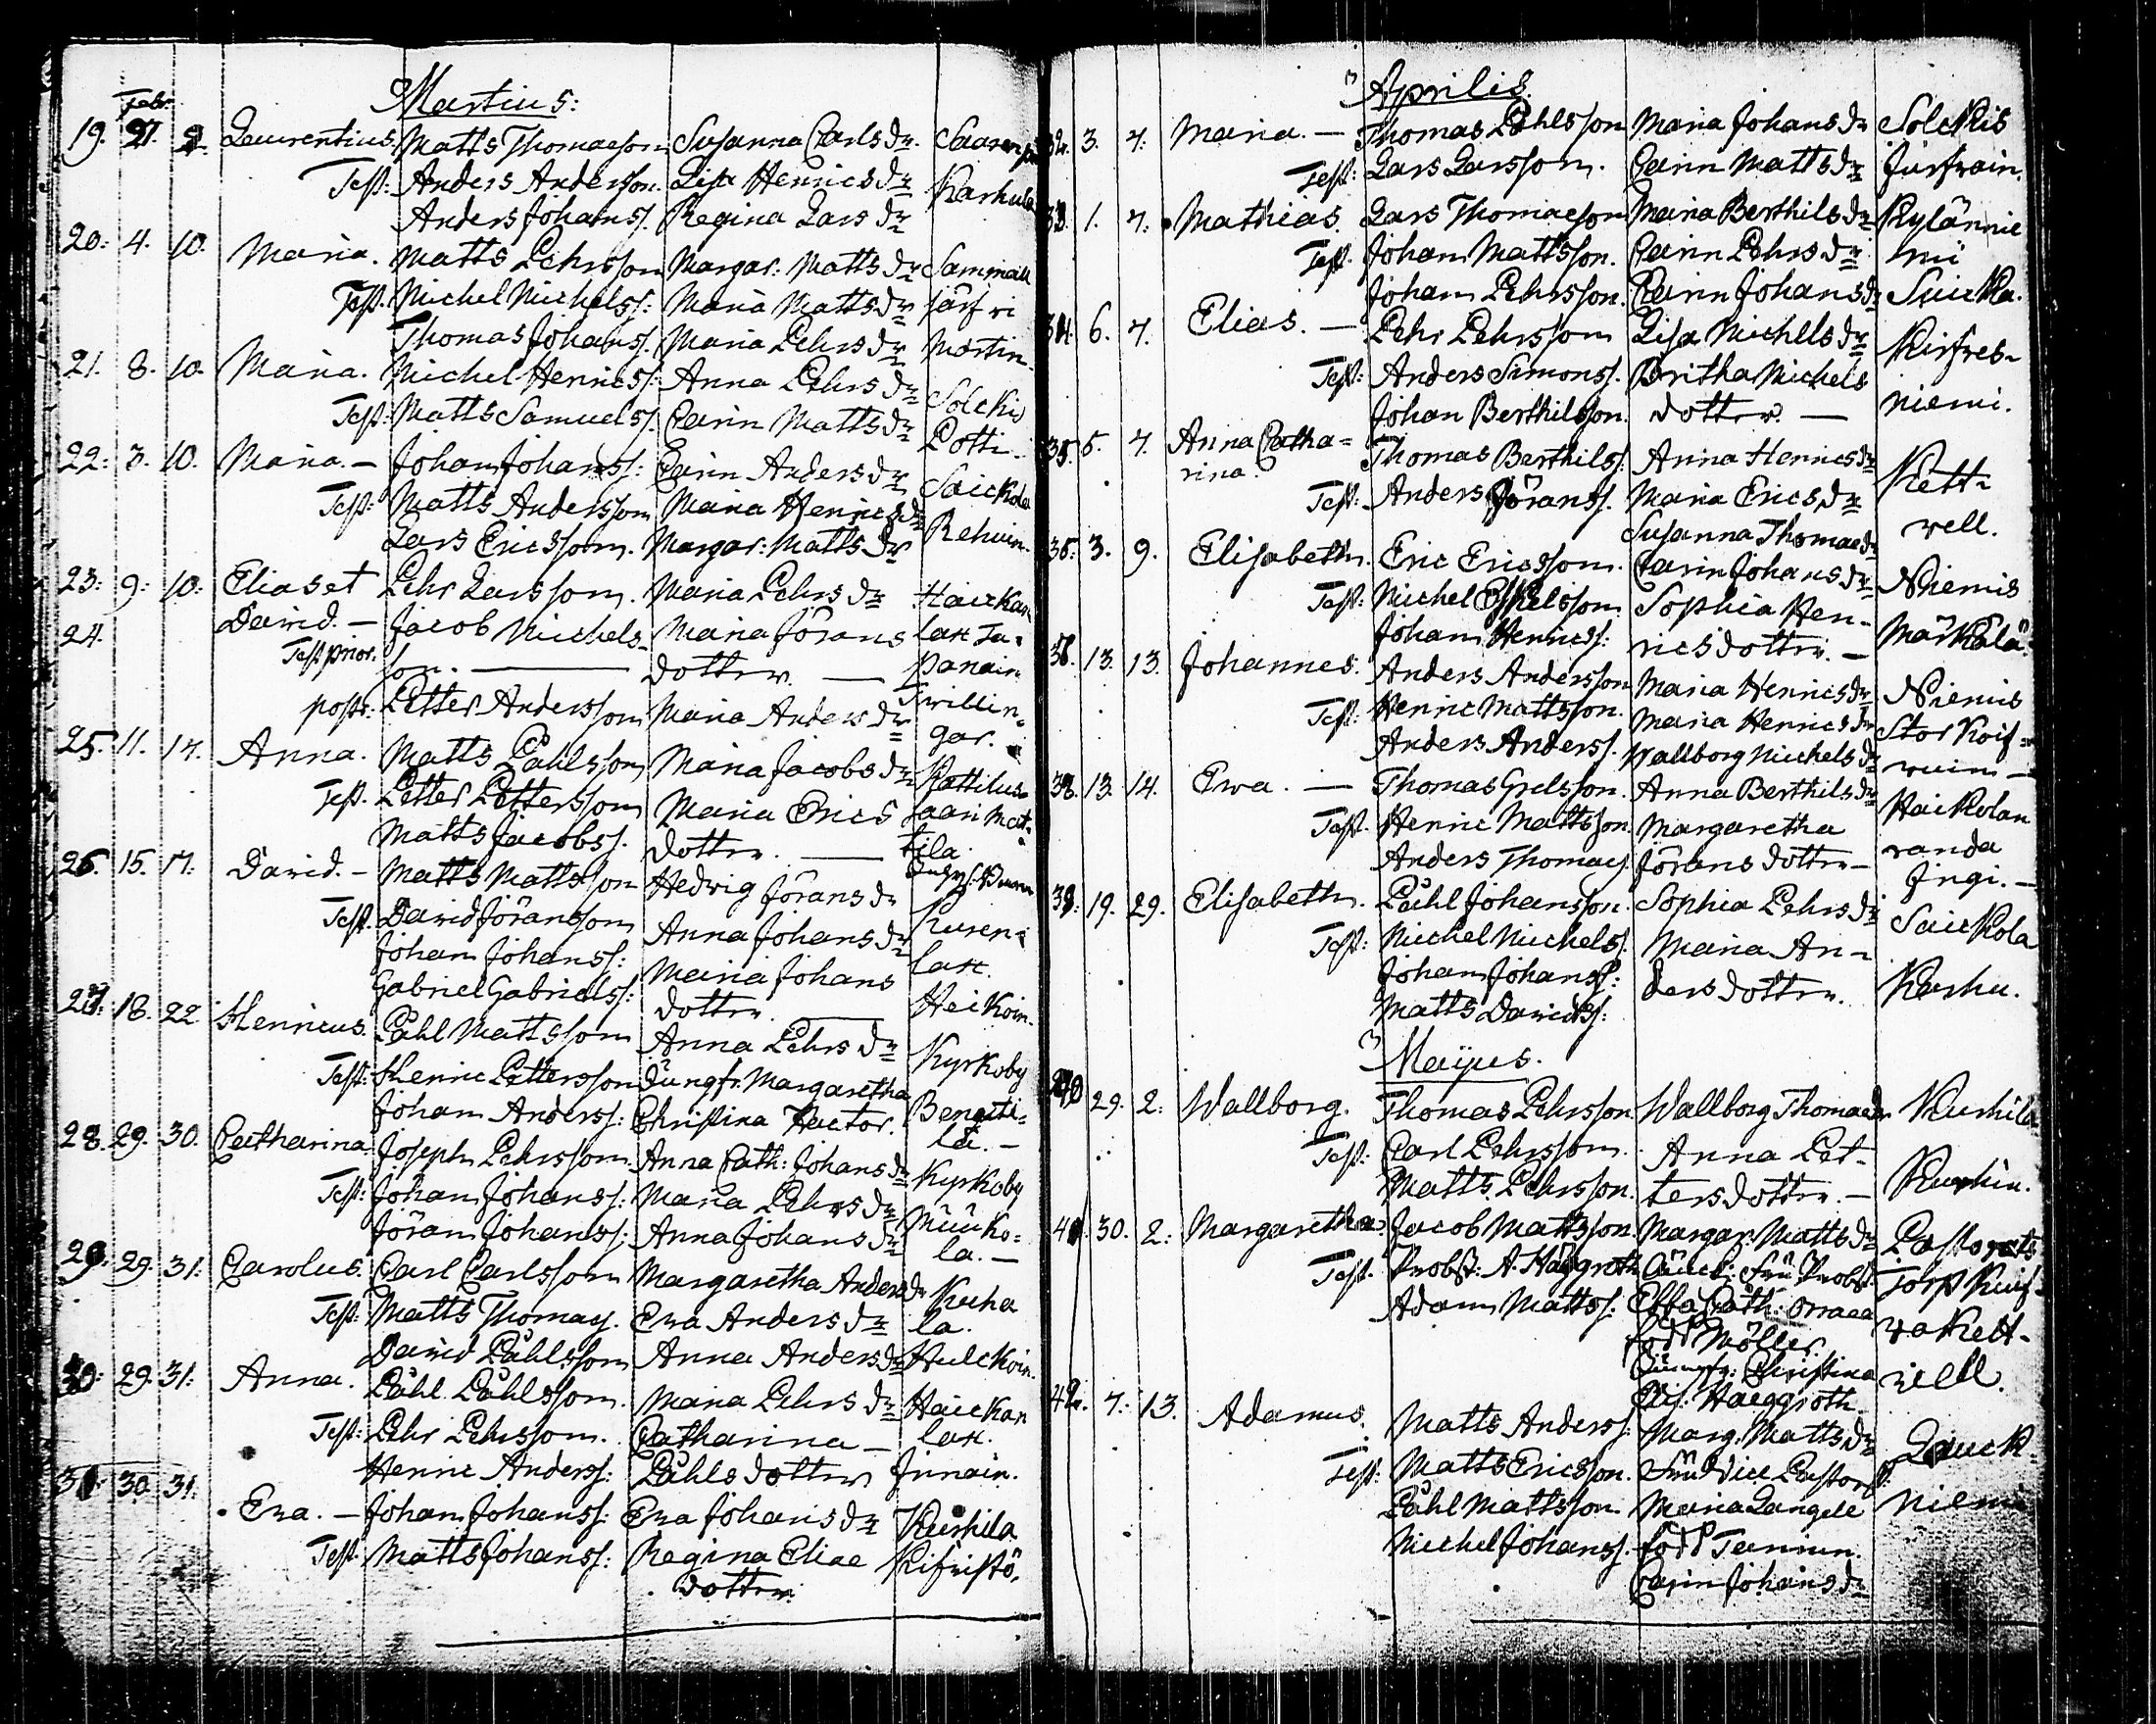 Martius:
Febr.
19. 27. 2. Laurentius. Matts Thomaeson Susanna Carlsdr.
Test: Anders Andersson. Lisa Henricsdr Karhula
Anders Johanss. Regina Larsdr
20: 4. 10. Maria. Matts Pehrsson Margar: Mattsdr Sammal
Test. Michel Michelss: Maria Mattsdr järfvi
Thomas Johanss. Maria Pehrsdr Mortin
21. 8. 10. Maria. Michel Henricss: Anna Pehrsdr Solckis
Test: Matts Samuelss. Carin Mattsdr Potti
22: 3. 10. Maria. — Johan Johanss: Carin Andersdr Saickola
Test: Matts Andersson Maria Henricsdr Rehuin.
Lars Ericsson. Margar: Mattsdr
23: 9: 10: Elias et Pehr Larsson. Maria Pehrsdr Haickan
24. David. — Jacob Michels- Maria Jörans lax Ja-
Test. prior. son. — dotter. — panain
post: Petter Andersson Maria Andersdr Twillin-
gar.
25. 11. 14. Anna. Matts Påhlsson Maria Jacobsdr Kattilus
Test. Petter Pettersson Maria Erics saari Mat-
Matts Jacobss. dotter. — tila.
26. 15. 17: David. — Matts Mattsson Hedvig Jöransdr
Test. David Jöransson Anna Johansdr Kuren-
Johan Johanss: Maria Johans lax.
Gabriel Gabrielss: dotter. — Heikoin.
27: 18. 22. Henricus. Påhl Mattsson Anna Pehrsdr Kyrkoby
Test: Henric Pettersson Jungfr. Margaretha
Johan Anderss: Christina Hactor. Bengti-
lä. —
28. 29. 30. Catharina Joseph Pehrsson Anna Cath: Johansdr Kyrkoby
Test: Johan Johanss: Maria Pehrsdr Muuko-
Jöran Johanss: Anna Johansdr la. —
29: 29. 31: Carolus. Carl Carlsson Margaretha Andersdr Kuha
Test: Matts Thomaes. Eva Andersdr la.
David Påhlsson Anna Andersdr Hulckoin.
30: 29. 31: Anna. Påhl Påhlsson. Maria Pehrsdr Haickan
Test: Pehr Pehrsson. Catharina — lax.
Henric Anderss: Påhlsdotter Innain.
31: 30. 31: Eva. — Johan Johanss: Eva Johansdr Kurkila
Test. Matts Johanss: Regina Eliae
dotter.
Aprilis.
32. 3. 7: Maria. — Thomas Påhlsson Maria Johansdr Solckis
Test: Lars Larsson. Carin Mattsdr
33. 1. 7: Mathias. Lars Thomaeson Maria Berthilsdr Kylännie
Test. Johan Mattsson. Carin Pehrsdr mi
Johan Pehrsson. Carin Johansdr Suicka.
34. 6. 7. Elias. — Pehr Pehrsson Lisa Michelsdr
Test: Anders Simonss. Britha Michels niemi.
Johan Berthilsson. dotter. —
35. 5. 7. Anna Catha- Thomas Berthilss. Anna Henricsdr Kett-
rina. Test: Anders Jöranss. Maria Ericsdr vell.
Susanna Thomaedr
36: 3. 9. Elisabeth. Eric Ericsson. Carin Johansdr Niemis
Test: Michel Eskelsson Sophia Hen- Märkälä
Johan Henricss: ricsdotter. —
13. 13. Johannes. Anders Andersson Maria Henricsdr Niemis
Test: Henric Mattsson. Maria Henricsdr Stor Koif-
Anders Anderss. Wallborg Michelsdr vuin —
38. 13. 14. Ewa. — Thomas Grelsson. Anna Berthilsdr Haickolan
Test. Henric Mattsson. Margaretha randa
Anders Thomaes. Jöransdotter — Jngi. —
39: 19. 29. Elisabeth. Påhl Johansson. Sophia Pehrsdr Saickola
Test: Michel Michelss. Maria An-
Johan Johanss: dersdotter. Karhu.
Matts Davidss:
Majus.
40 29. 2: Wallborg. Thomas Pehrsson Wallborg Thomaedr Kurkila
Test: Carl Pehrsson. Anna Pet-
Matts Pehrsson. tersdotter. — Kurkin.
41. 30. 2: Margaretha Jacob Mattsson. Margar. Mattsdr Pastorats
Test. Probst: A. Häggroth Fru Probst. Torp Kuif-
Adam Mattss: Ebba Cath: Orraea va Kett-
född Möller. vell.
Jungfr: Christina
Elis: Haeggroth.
42. 7: 13. Adamus. Matts Anderss: Marg. Mattsdr
Test: Matts Ericsson. Fru Vice Pastors:
Påhl Mattsson. Maria Langell niemi
Michel Johanss. född
Carin Johansdr